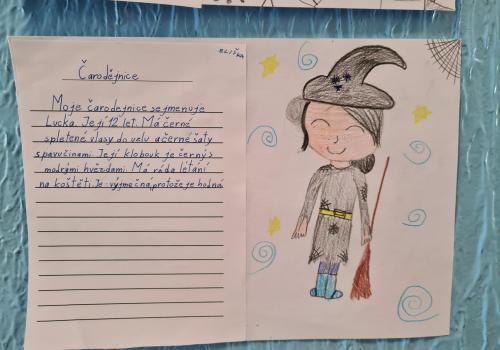 ELIŠKA
Čarodějnice
Moje čarodejnice se jmenuje
Lucka. Její 12 let. Má černé
spletené vlasy do uzlu a černé šaty
s pavučinami. Její klobouk je černý s
modrými hvězdami. Má ráda létání
na koštěti. Je výjmečná protože je hodná.